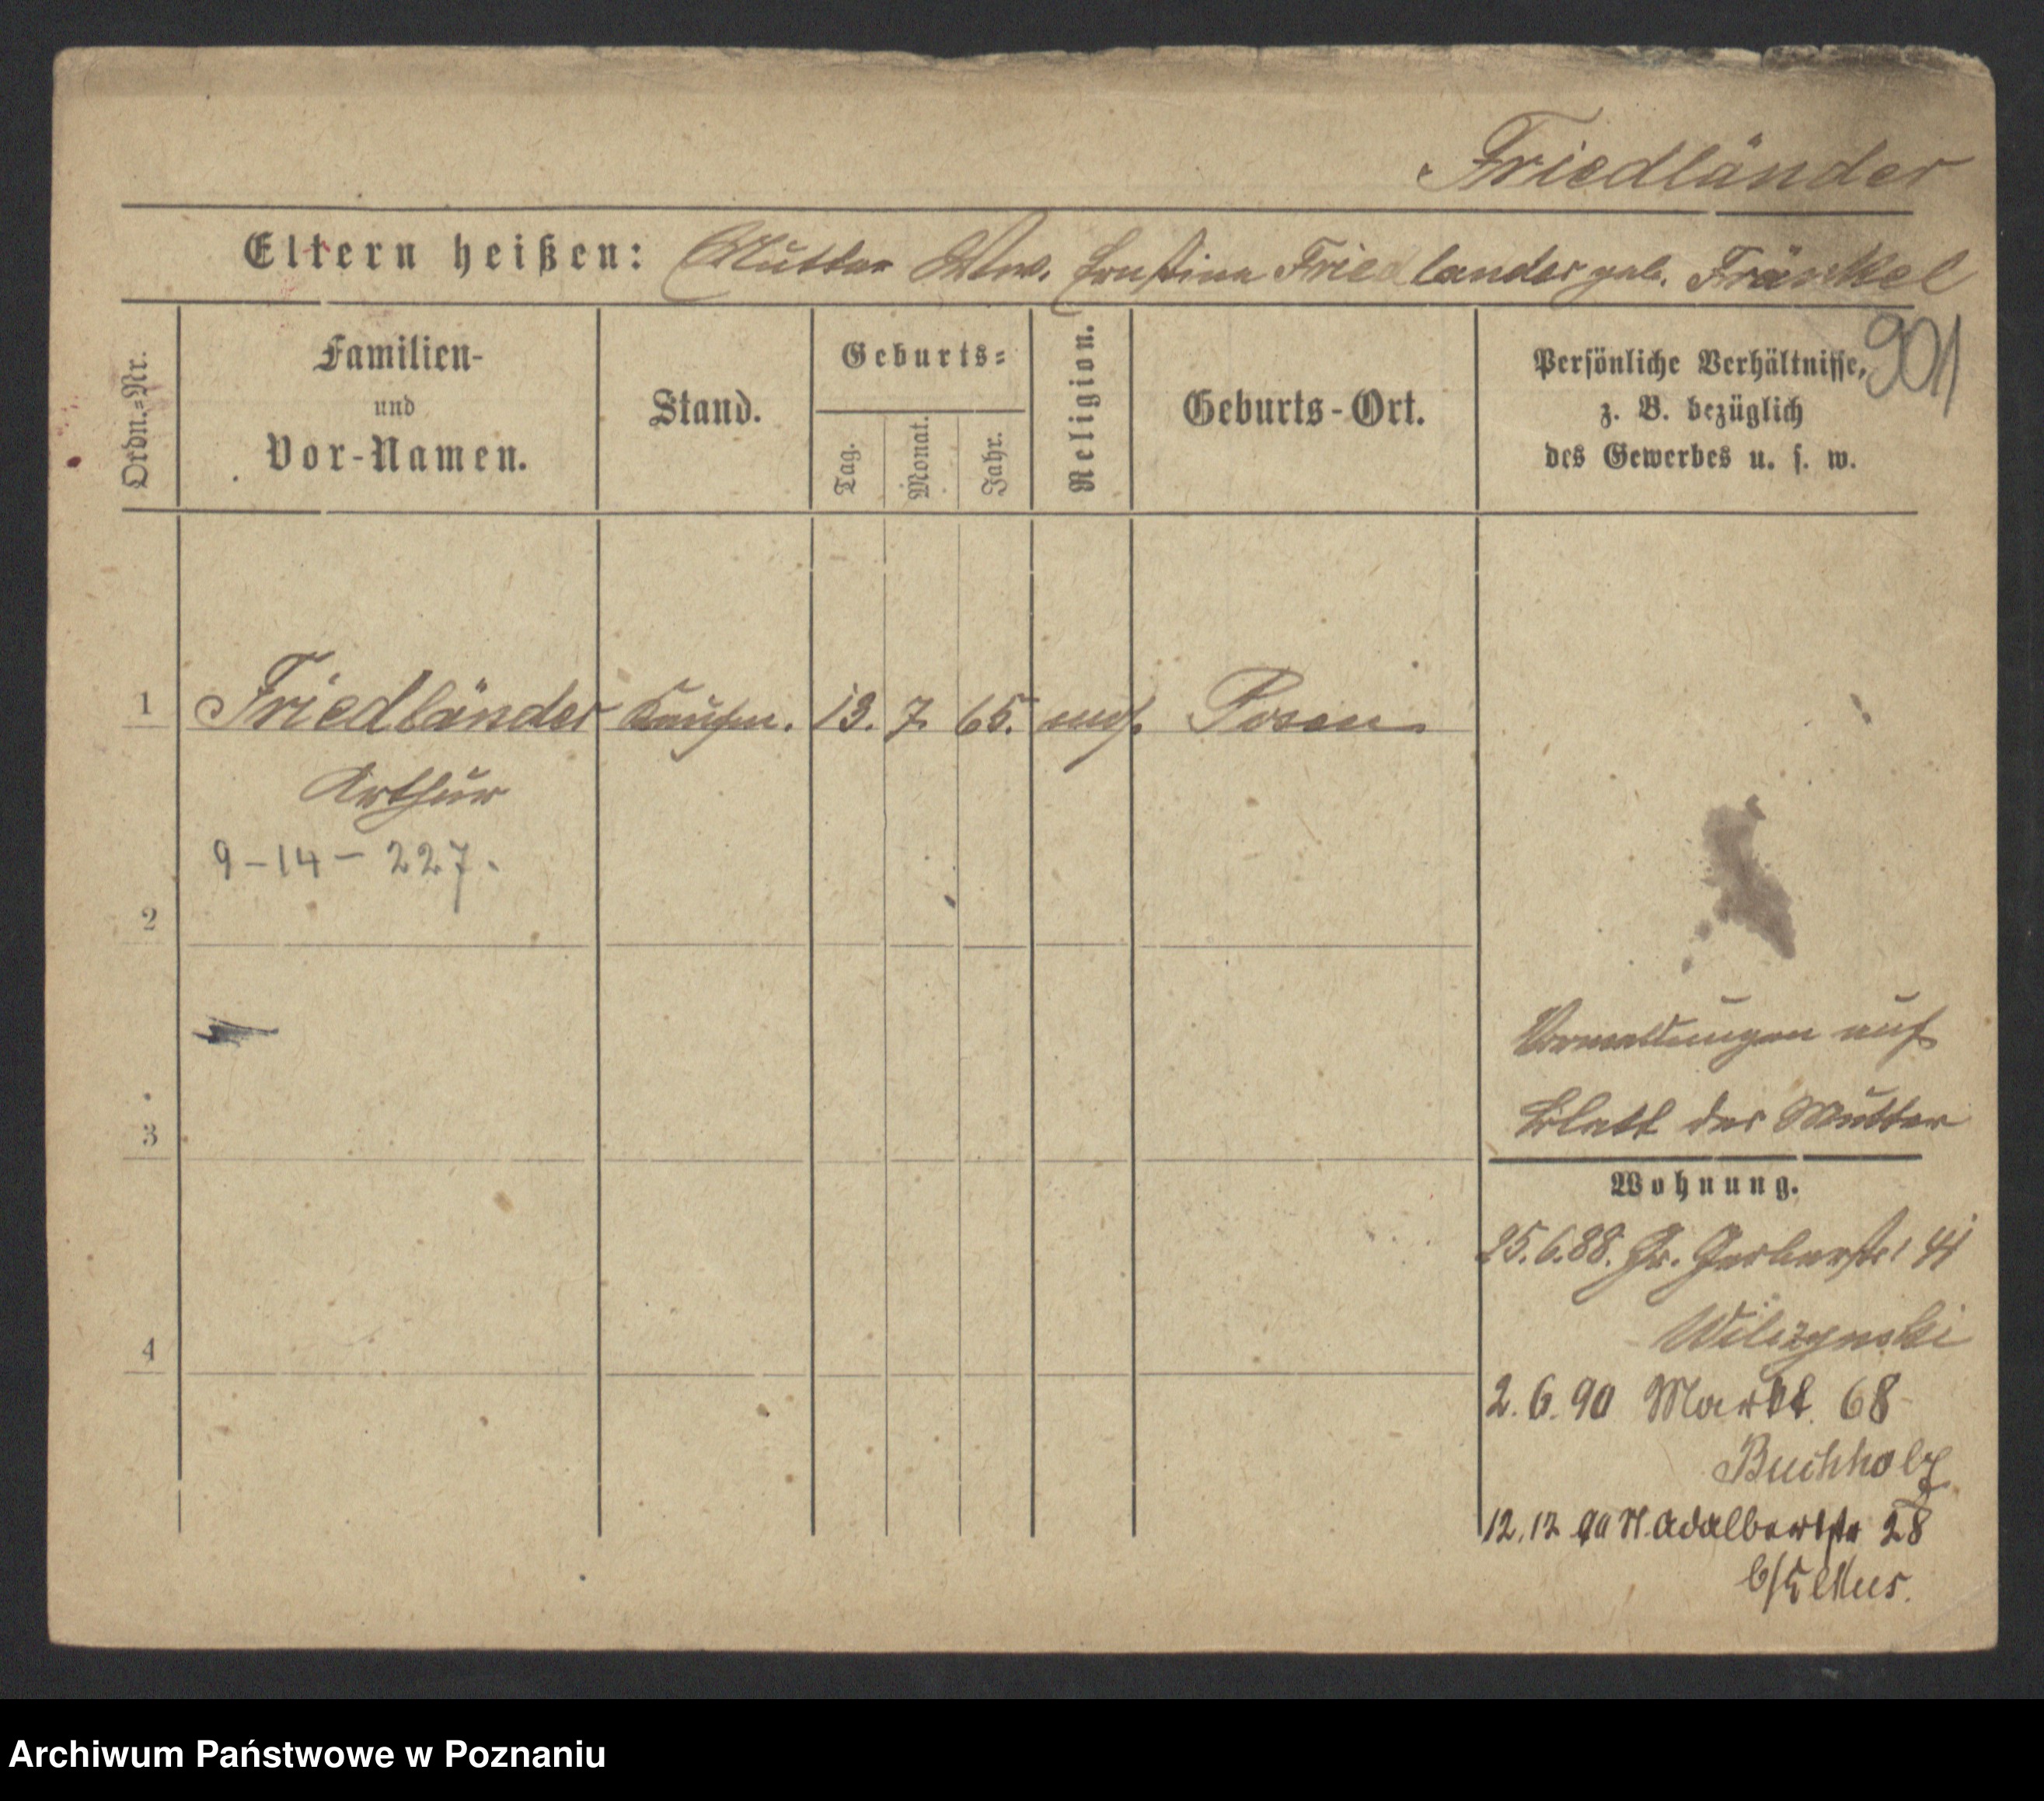 Friedländer
Eltern heißen: Mutter Wwe. Ernstine Friedlander geb. Fränkel
901
Ordn.=Nr.
Familien-
und
Vor-Namen.
Stand.
Geburts=
Tag.
Monat.
Jahr.
Religion.
Geburts-Ort.
Persönliche Verhältnisse,
z. B. bezüglich
des Gewerbes u. s. w.
1 Friedländer Kaufm. 13. 7. 65. mos. Posen
Arthur
9-14-227.
2
3
4
auf
Blatt der Mutter
Wohnung.
25.6.88. Gr. Gerberstr. 41
Wilczynski
2. 6. 90 Markt. 68
Buchholz
12.12 90 St. Adalbertstr 28
b/
Archiwum Państwowe w Poznaniu